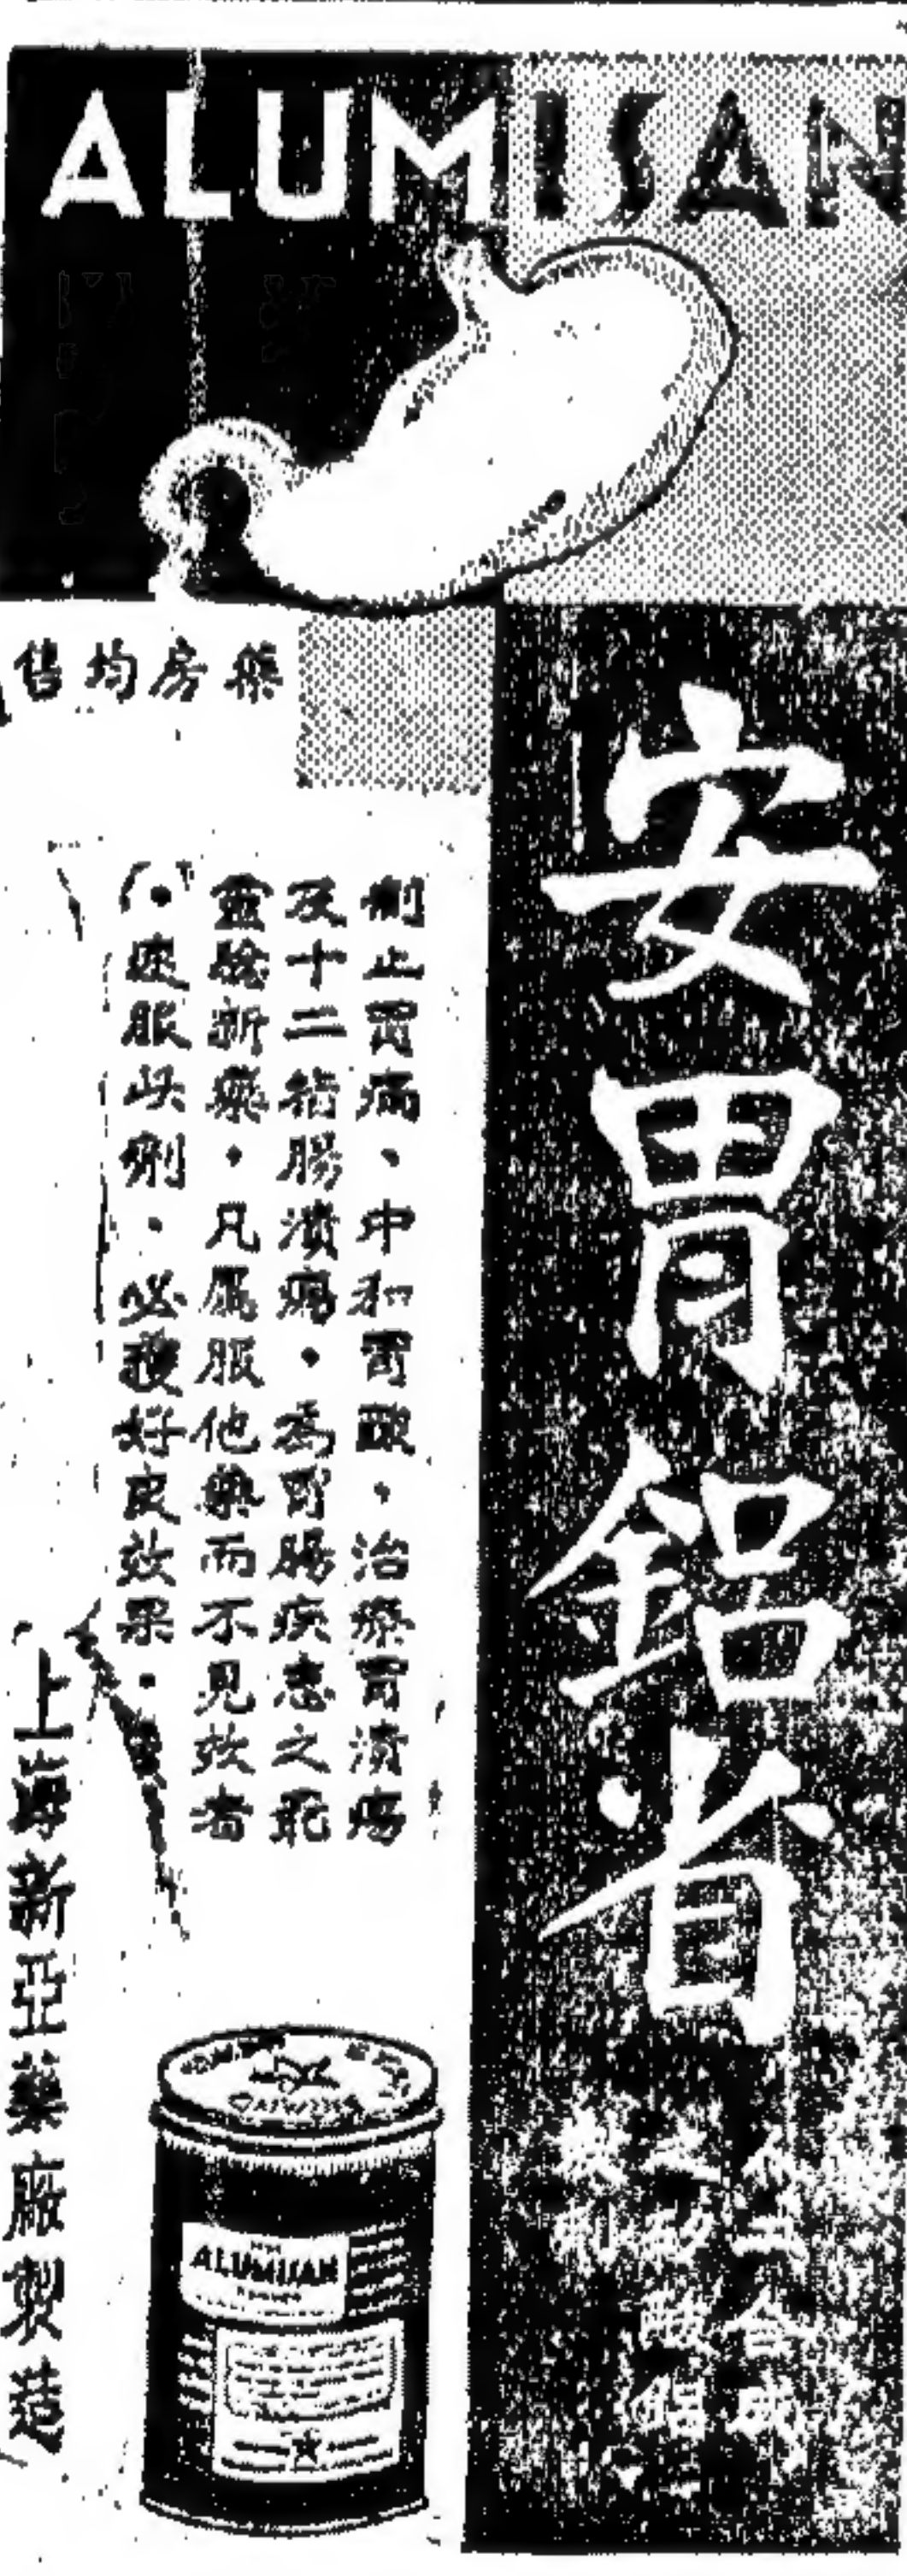 ALUMISAN
安胃鋁省
人工合成
之矽酸鋁
製劑
制止胃痛、中和胃酸，治療胃潰瘍
及十二指腸潰瘍・為胃腸疾患之最
靈驗新藥・凡屬服他藥而不見效者
・速服此劑・必獲好良效果・
藥房均售
上海新亞藥廠製造
ALUMISAN